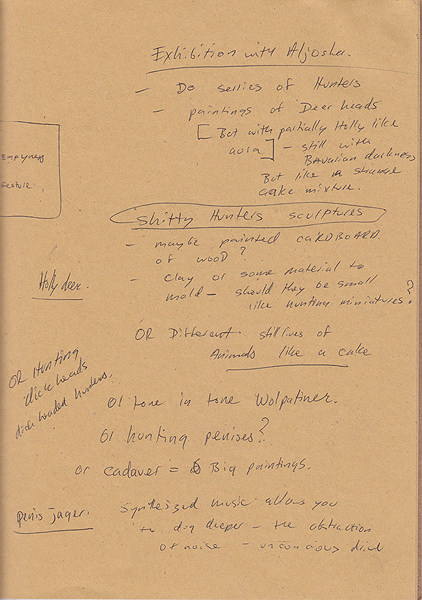 Exhibition with Aljosha.
- Do series of Hunters
- paintings of Deer heads
[But with partially Holly like
aora] - still with
Bavarian darkness
But like a strange
cake mixture.
Empyness
Gesture.
Shitty Hunters sculptures
- maybe painted CARDBOARD.
of wood?
- clay or some material to
mold - should they be small
like hunting miniatures?
Holly deer.
OR Different still lives of
Animals like a cake
OR Hunting
dick heads
dick headed hunters.
OI tone in tone Wolpatiner.
OI hunting penises?
or cadaver = Big paintings.
penis jager.
Synthesized music allows you
to dig deeper - the abstraction
of noise - unconcious